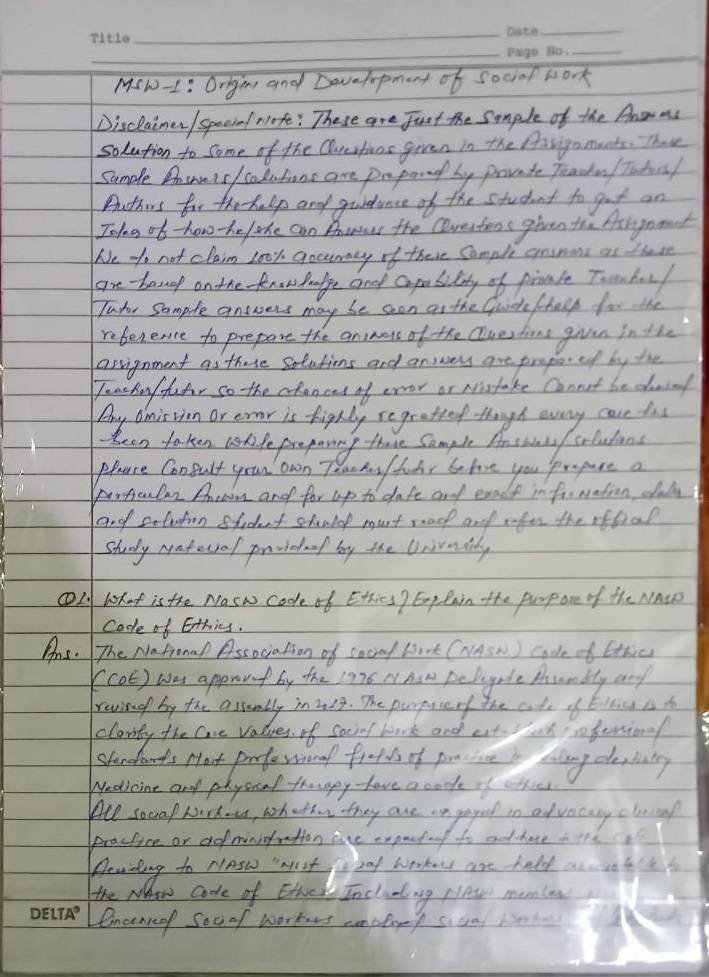 Title
Date
Page No.
MSW-1: Origin and Development of Social Work
Disclaimer/Special Note: These are Just the Sample of the Answers
Solution to Some of the Questions given in the Assignments. These
Sample Answers/Solutions are Prepared by Private Teacher/Tutors/
Authors for the help and guidance of the student to get an
Idea of how he/she can Answer the Questions given the Assignment
We do not claim 100% accuracy of these Sample answers as these
are based on the knowledge and Capability of private Teacher/
Tutor Sample answers may be seen as the Guide/help for the
reference to prepare the answers of the Questions given in the
assignment as these Solutions and answers are prepared by the
Teacher/tutor so the chances of error or Mistake Cannot be denied
Any Omission or error is highly regretted though every care has
been taken while preparing these Sample Answers/Solutions
please Consult your Own Teacher/tutor before you prepare a
particular Answer and for up to date and exact information, data
and solution Student should must read and refer the official
Study Material provided by the University
Q1. What is the NASW Code of Ethics? Explain the purpose of the NASW
Code of Ethics.
Ans. The National Association of Social Work (NASW) Code of Ethics
(COE) was approved by the 1996 NASW Delegate Assembly and
revised by the assembly in 2017. The purpose of the code of Ethics is to
clarify the Core Values of Social Work and establish professional
Standards Most professional fields of practice including dentistry
Medicine and physical therapy have a code of ethics.
All social Workers, whether they are engaged in advocacy clinical
practice or administration are expected to adhere to the
to NASW "Most Social Workers are held accountable to
the NASW Code of Ethics Including NASW members
Social Workers employed Social Workers
DELTA